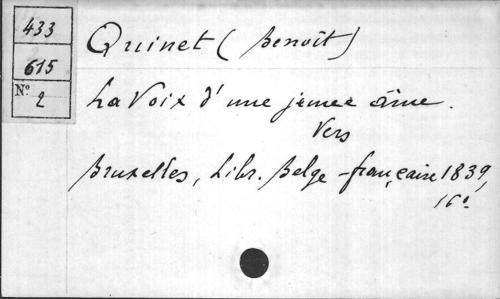 433
615
Nº 2
Quinet (Benoît)
La Voix d'une jeune âme.
Vers
Bruxelles, Libr. Belge-française 1839,
16º